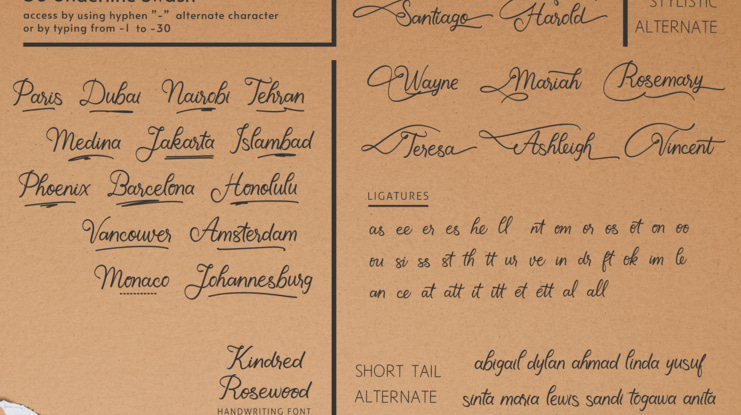 access by using hyphen "-" alternate character
or by typing from -1 to -30
Paris Dubai Nairobi Tehran
Medina Jakarta Islambad
Phoenix Barcelona Honolulu
Vancouver Amsterdam
Monaco Johannesburg
Kindred
Rosewood
HANDWRITING FONT
Santiago Harold
STYLISTIC
ALTERNATE
Wayne Mariah Rosemary
Teresa Ashleigh Vincent
LIGATURES
as ee er es he ll nt om or os ot on oo
ou si ss st th tt ur ve in dr ft ok im le
an ce at att it itt et ett al all
SHORT TAIL
ALTERNATE
abigail dylan ahmad linda yusuf
sinta maria lewis sandi togawa anita